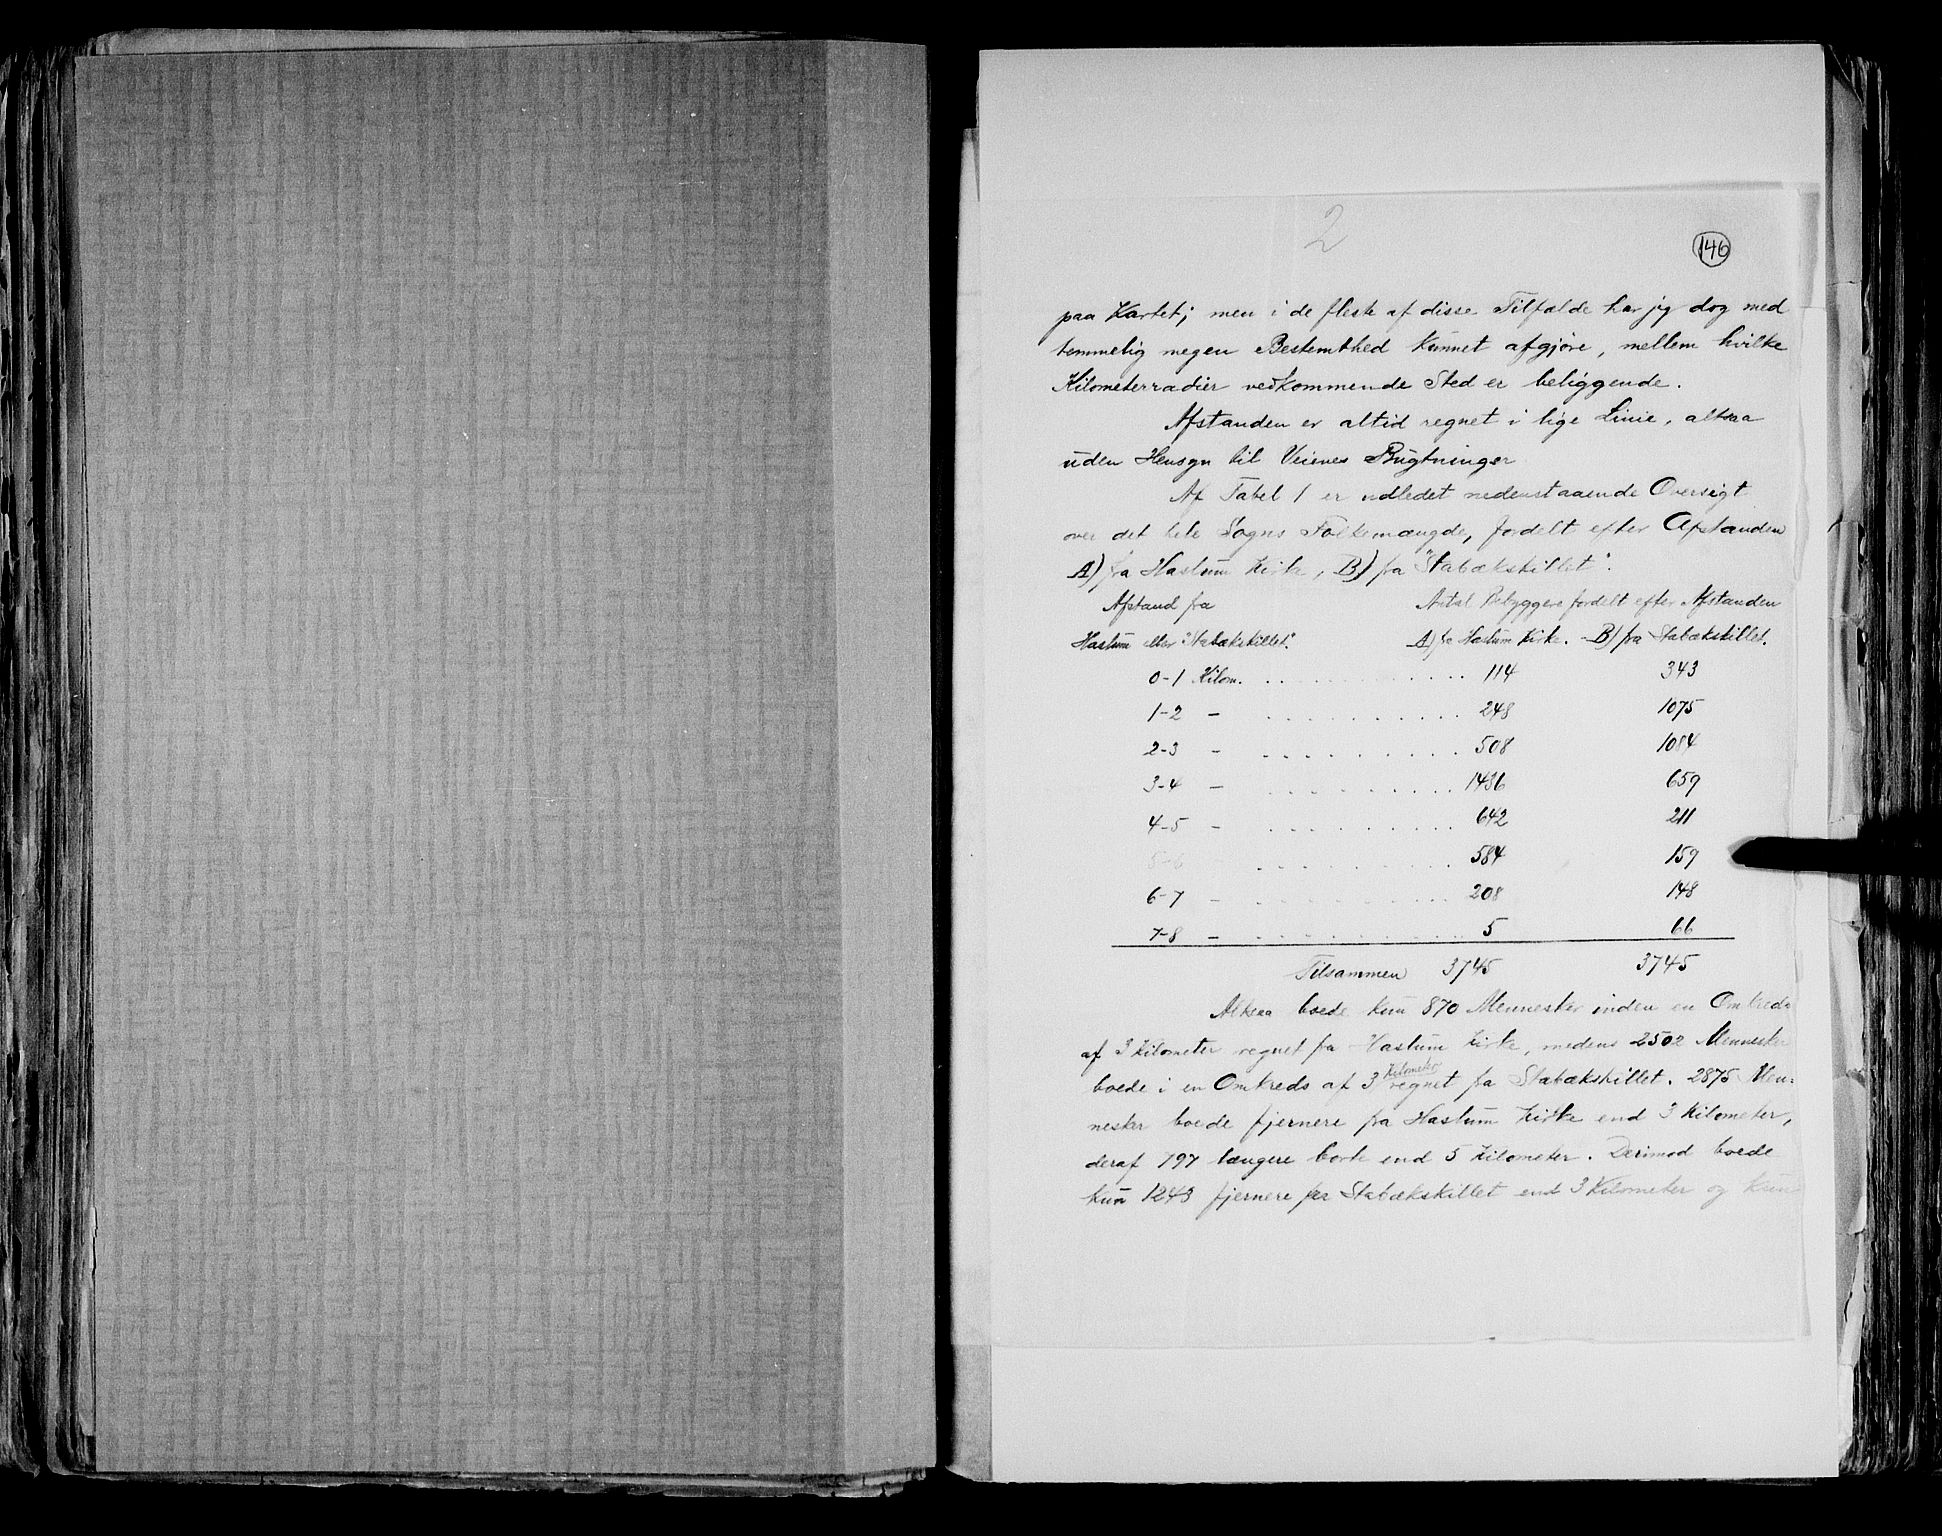 2
146
paa Kartet; men i de fleste af disse Tilfælde har jeg dog med
temmelig megen Bestemthed kunnet afgjøre, mellem hvilke
Kilometerradier vedkommende Sted er beliggende.
Afstanden er altid regnet i lige Linie, altsaa
uden Hensyn til Veienes Bugtninger
Af Tabel 1 er udledet nedenstaaende Oversigt
over det hele Sogns Folkemængde, fordelt efter Afstanden
A) fra Haslum Kirke, B) fra "Stabækskillet".
Afstand fra Antal Bebyggere fordelt efter Afstanden
Haslum eller "Stabækskillet". A) fra Haslum Kirke. B) fra Stabækskillet.
0-1 Kilom. . . . . . . . . . . 114 343
1-2 - . . . . . . . . . . 248 1075
2-3 - . . . . . . . . . . 508 1084
3-4 - . . . . . . . . . . 1436 659
4-5 - . . . . . . . . . . 642 211
5-6 . . . . . . . . . . 584 159
6-7 - . . . . . . . . . . 208 148
7-8 - . . . . . . . . . . 5 66
Tilsammen 3745 3745
Altsaa boede kun 870 Mennesker inden en Omkreds
af 3 Kilometer regnet fra Haslum Kirke, medens 2502 Mennesker
boede i en Omkreds af 3 Kilometer regnet fra Stabækskillet. 2875 Men-
nesker boede fjernere fra Haslum Kirke end 3 Kilometer,
deraf 797 længere borte end 5 Kilometer. Derimod boede
kun 1243 fjernere fra Stabækskillet end 3 Kilometer og kun